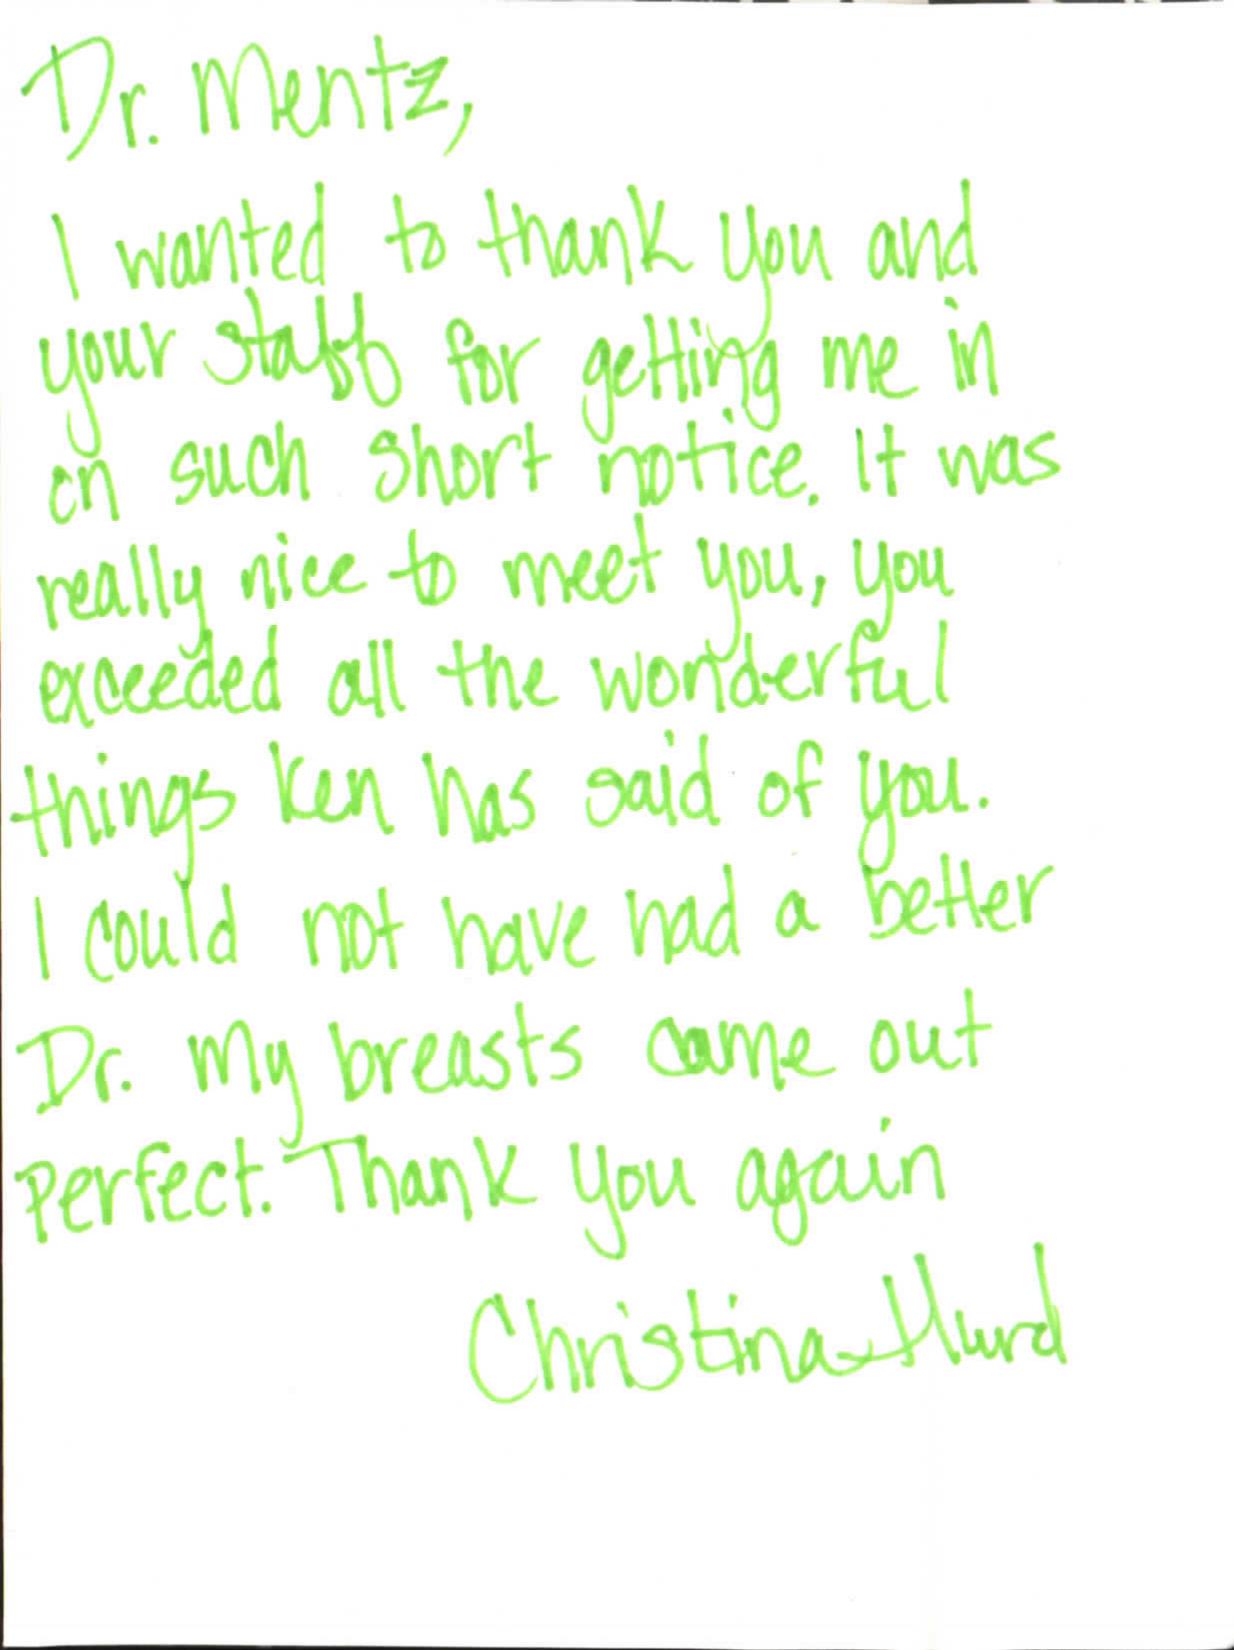 Dr. Mentz,
I wanted to thank you and
your staff for getting me in
on such short notice. It was
really nice to meet you, you
exceeded all the wonderful
things Ken has said of you.
I could not have had a better
Dr. My breasts came out
perfect. Thank you again
Christina Hurd